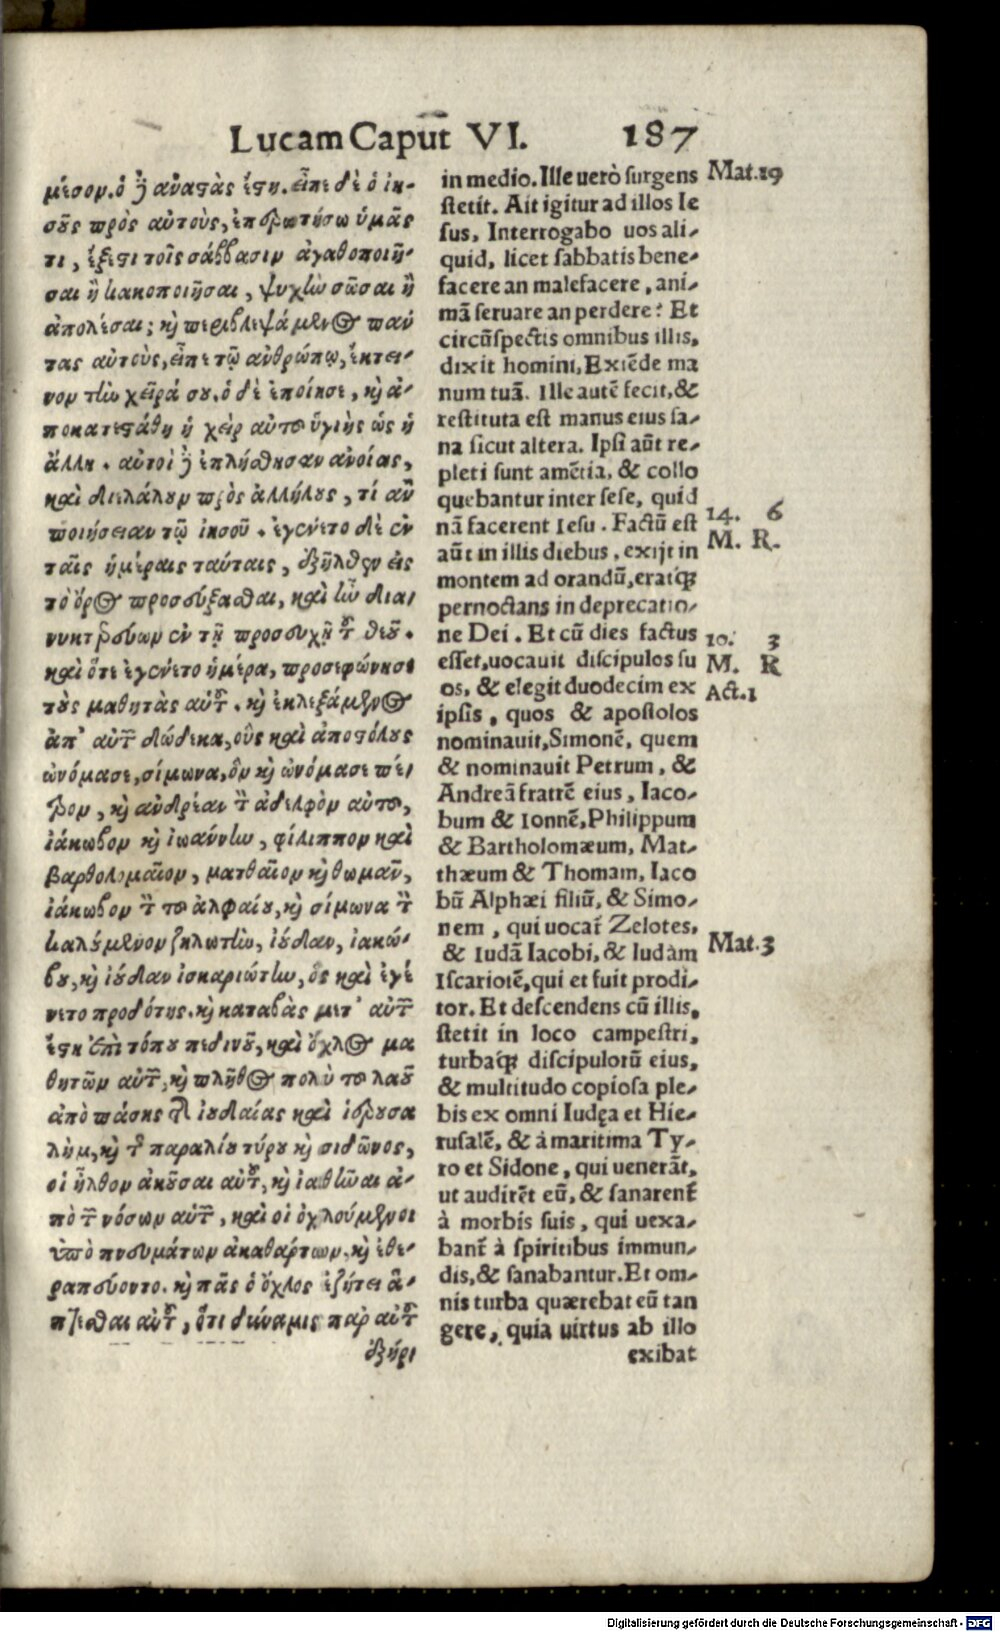 Lucam Caput VI. 187
μέσον. ὁ δὲ ἀναστὰς ἔστη. εἶπε δὲ ὁ ἰη-
σοῦς πρὸς αὐτοὺς, ἐπερωτήσω ὑμᾶς
τι, ἔξεστι τοῖς σάββασιν ἀγαθοποιῆ-
σαι ἢ κακοποιῆσαι, ψυχὴν σῶσαι ἢ
ἀπολέσαι; καὶ περιβλεψάμενος παν
τας αὐτοὺς, εἶπε τῷ ἀνθρώπῳ, ἔκτει-
νον τὴν χεῖρά σου. ὁ δὲ ἐποίησε, καὶ ἀ-
ποκατεστάθη ἡ χεὶρ αὐτοῦ ὑγιὴς ὡς ἡ
ἄλλη. αὐτοὶ δὲ ἐπλήσθησαν ἀνοίας,
καὶ διελάλουν πρὸς ἀλλήλους, τί ἂν
ποιήσειαν τῷ ἰησοῦ. ἐγένετο δὲ ἐν
ταῖς ἡμέραις ταύταις, ἐξῆλθεν εἰς
τὸ ὄρος προσεύξασθαι, καὶ ἦν δια-
νυκτερεύων ἐν τῇ προσευχῇ τοῦ θεοῦ.
καὶ ὅτε ἐγένετο ἡμέρα, προσεφώνησε
τοὺς μαθητὰς αὐτοῦ. καὶ ἐκλεξάμενος
ἀπ' αὐτῶν δώδεκα, οὓς καὶ ἀποστόλους
ὠνόμασε, σίμωνα, ὃν καὶ ὠνόμασε πέ-
τρον, καὶ ἀνδρέαν τὸν ἀδελφὸν αὐτοῦ,
ἰάκωβον καὶ ἰωάννην, φίλιππον καὶ
βαρθολομαῖον, ματθαῖον καὶ θωμᾶν,
ἰάκωβον τὸν τοῦ ἀλφαίου, καὶ σίμωνα τὸν
καλούμενον ζηλωτὴν, ἰούδαν, ἰακώ-
βου, καὶ ἰούδαν ἰσκαριώτην, ὃς καὶ ἐγέ
νετο προδότης. καὶ καταβὰς μετ' αὐτῶν
ἔστη ἐπὶ τόπου πεδινοῦ, καὶ ὄχλος μα
θητῶν αὐτοῦ, καὶ πλῆθος πολὺ τοῦ λαοῦ
ἀπὸ πάσης τῆς ἰουδαίας καὶ ἱερουσα
λὴμ, καὶ τῆς παραλίου τύρου καὶ σιδῶνος,
οἳ ἦλθον ἀκοῦσαι αὐτοῦ, καὶ ἰαθῆναι ἀ-
πὸ τῶν νόσων αὐτῶν, καὶ οἱ ὀχλούμενοι
ὑπὸ πνευμάτων ἀκαθάρτων, καὶ ἐθε-
ραπεύοντο. καὶ πᾶς ὁ ὄχλος ἐζήτει ἅ-
πτεσθαι αὐτοῦ, ὅτι δύναμις παρ αὐτοῦ
ἐξήρ-
in medio. Ille uerò surgens
stetit. Ait igitur ad illos Ie
sus, Interrogabo uos ali-
quid, licet sabbatis bene-
facere an malefacere, ani-
mā seruare an perdere? Et
circūspectis omnibus illis,
dixit homini, Extēde ma
num tuā. Ille autē fecit, &
restituta est manus eius sa-
na sicut altera. Ipsi aūt re-
pleti sunt amētia, & collo
quebantur inter sese, quid
nā facerent Iesu. Factū est
aūt in illis diebus, exijt in
montem ad orandū, eratq́;
pernoctans in deprecatio-
ne Dei. Et cū dies factus
esset, uocauit discipulos su
os, & elegit duodecim ex
ipsis, quos & apostolos
nominauit, Simonē, quem
& nominauit Petrum, &
Andreā fratrē eius, Iaco-
bum & Ionnē, Philippum
& Bartholomæum, Mat-
thæum & Thomam, Iaco
bū Alphæi filiū, & Simo-
nem, qui uocat̄ Zelotes,
& Iudā Iacobi, & Iudàm
Iscariotē, qui et fuit prodi-
tor. Et descendens cū illis,
stetit in loco campestri,
turbaq́; discipulorū eius,
& multitudo copiosa ple-
bis ex omni Iudęa et Hie-
rusalē, & à maritima Ty-
ro et Sidone, qui uenerāt,
ut audirēt eū, & sanarent̄
à morbis suis, qui uexa-
bant̄ à spiritibus immun-
dis, & sanabantur. Et om-
nis turba quærebat eū tan
gere, quia uirtus ab illo
exibat
Mat.19
14. 6
M. R.
10. 3
M. R
Act.1
Mat.3
Digitalisierung gefördert durch die Deutsche Forschungsgemeinschaft - DFG